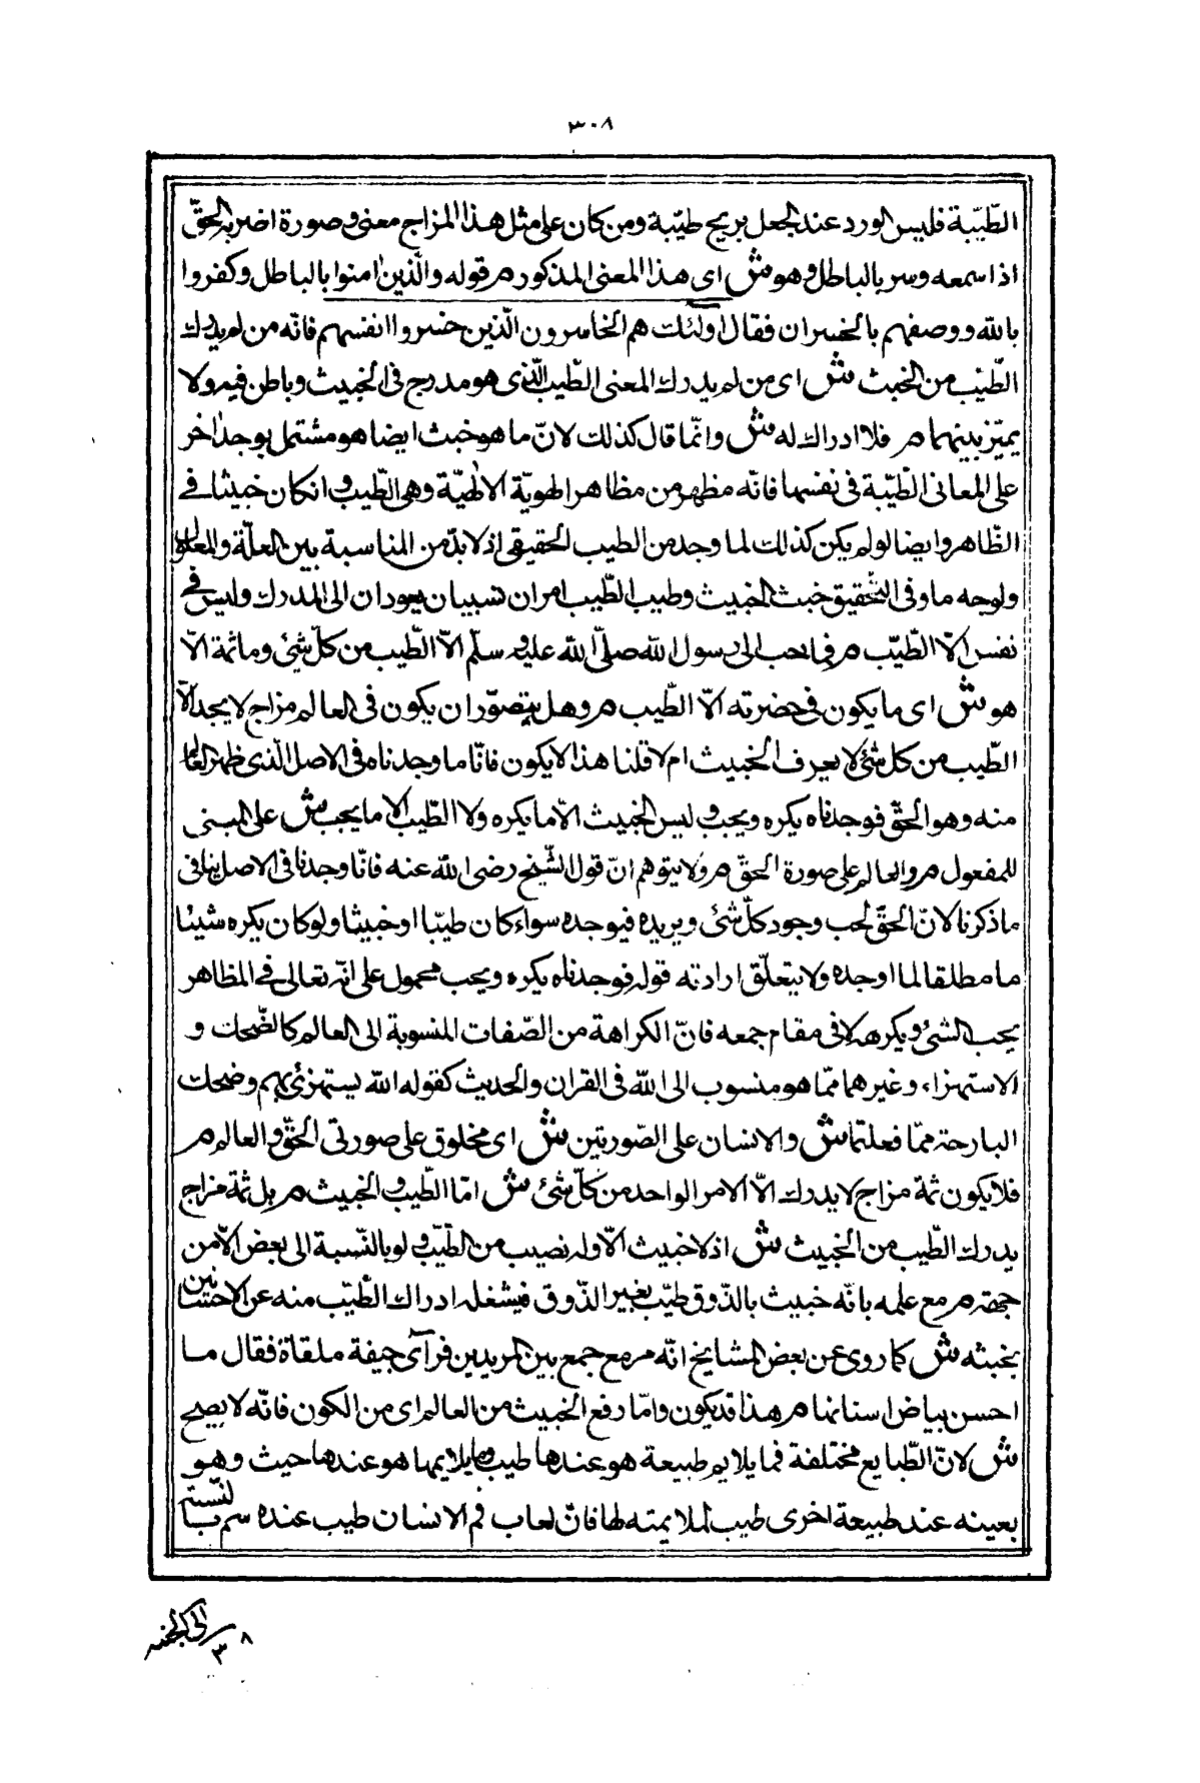 ٣٠٨
الطّيّبة فليس الورد عند الجعل بريح طيّبة ومن كان على مثل هذا المزاج معنى وصورة اضربه الحقّ
اذا سمعه وسر بالباطل وهو ش اى هذا المعنى المذكور م قوله والّذين امنوا بالباطل وكفروا
بالله ووصفهم بالخسران فقال اولئك هم الخاسرون الّذين خسروا انفسهم فانّه من لم يدرك
الطّيّب من الخبث ش اى من لم يدرك المعنى الطّيب الّذى هو مدرج فى الخبيث وباطن فيه ولا
يميّز بينهما م فلا ادراك له ش وانّما قال كذلك لانّ ما هو خبث ايضا هو مشتمل بوجه اخر
على المعانى الطّيّبة فى نفسها فانّه مظهر من مظاهر الهويّة الالهيّة وهى الطّيب وان كان خبيثا فى
الظّاهر وايضا لو لم يكن كذلك لما وجد من الطيب الحقيقى اذ لا بدّ من المناسبة بين العلّة والمعلول
ولوجه ما وفى التّحقيق خبث الخبيث وطيب الطّيب امران نسبيان يعودان الى المدرك وليس فى
نفس الّا الطّيّب م فما حب الى رسول الله صلّى الله عليه وسلّم الّا الطّيب من كلّ شئ وما ثمة الّا
هو ش اى ما يكون فى حضرته الّا الطّيب م وهل يتصوّر ان يكون فى العالم مزاج لا يجد الّا
الطّيب من كل شئ لا يعرف الخبيث ام لا قلنا هذا لا يكون فانّا ما وجدناه فى الاصل الّذى ظهر العالم
منه وهو الحقّ فوجدناه يكره ويحب وليس الخبيث الّا ما يكره ولا الطّيب الا ما يحب ش على المبنى
للمفعول م والعالم على صورة الحقّ م ولا يتوهم انّ قول الشّيخ رضى الله عنه فانّا وجدنا فى الاصل ينافى
ما ذكرنا لانّ الحقّ لحب وجود كلّ شئ ويريده فيوجده سواء كان طيّبا او خبيثا ولو كان يكره شيئا
ما مطلقا لما اوجده ولا يتعلّق ارادته قوله فوجدناه يكره ويحب محمول على انّه تعالى فى المظاهر
يحب الشئ ويكرهه لا فى مقام جمعه فانّ الكراهة من الصّفات المنسوبة الى العالم كالضّحك و
الاستهزاء وغيرهما ممّا هو منسوب الى الله فى القران والحديث كقوله الله يستهزئ بهم وضحك
البارحة ممّا فعلتما ش والانسان على الصّورتين ش اى مخلوق على صورتى الحقّ والعالم م
فلا يكون ثمة مزاج لا يدرك الّا الامر الواحد من كلّ شئ ش امّا الطّيب والخبيث م بل ثمة مزاج
يدرك الطّيب من الخبيث ش اذ لا خبيث الّا وله نصيب من الطّيّب ولو بالنّسبة الى بعض الامن
جهة م مع علمه بانّه خبيث بالذّوق طيّب بغير الذّوق فيشغله ادراك الطّيّب منه عن الاحساس
بخبثه ش كما روى عن بعض المشايخ انّه مر مع جمع بين المريدين فرآى جيفة ملقاة فقال ما
احسن بياض اسنانها م هذا قد يكون وامّا رفع الخبيث من العالم اى من الكون فانّه لا يصح
ش لانّ الطّبايع مختلفة فما يلايم طبيعة هو عندها طيب وما يلايمها هو عندها خبيث وهو
بعينه عند طبيعة اخرى طيب لملايمته لها فانّ لعاب فم الانسان طيب عنده سم بالنسبة